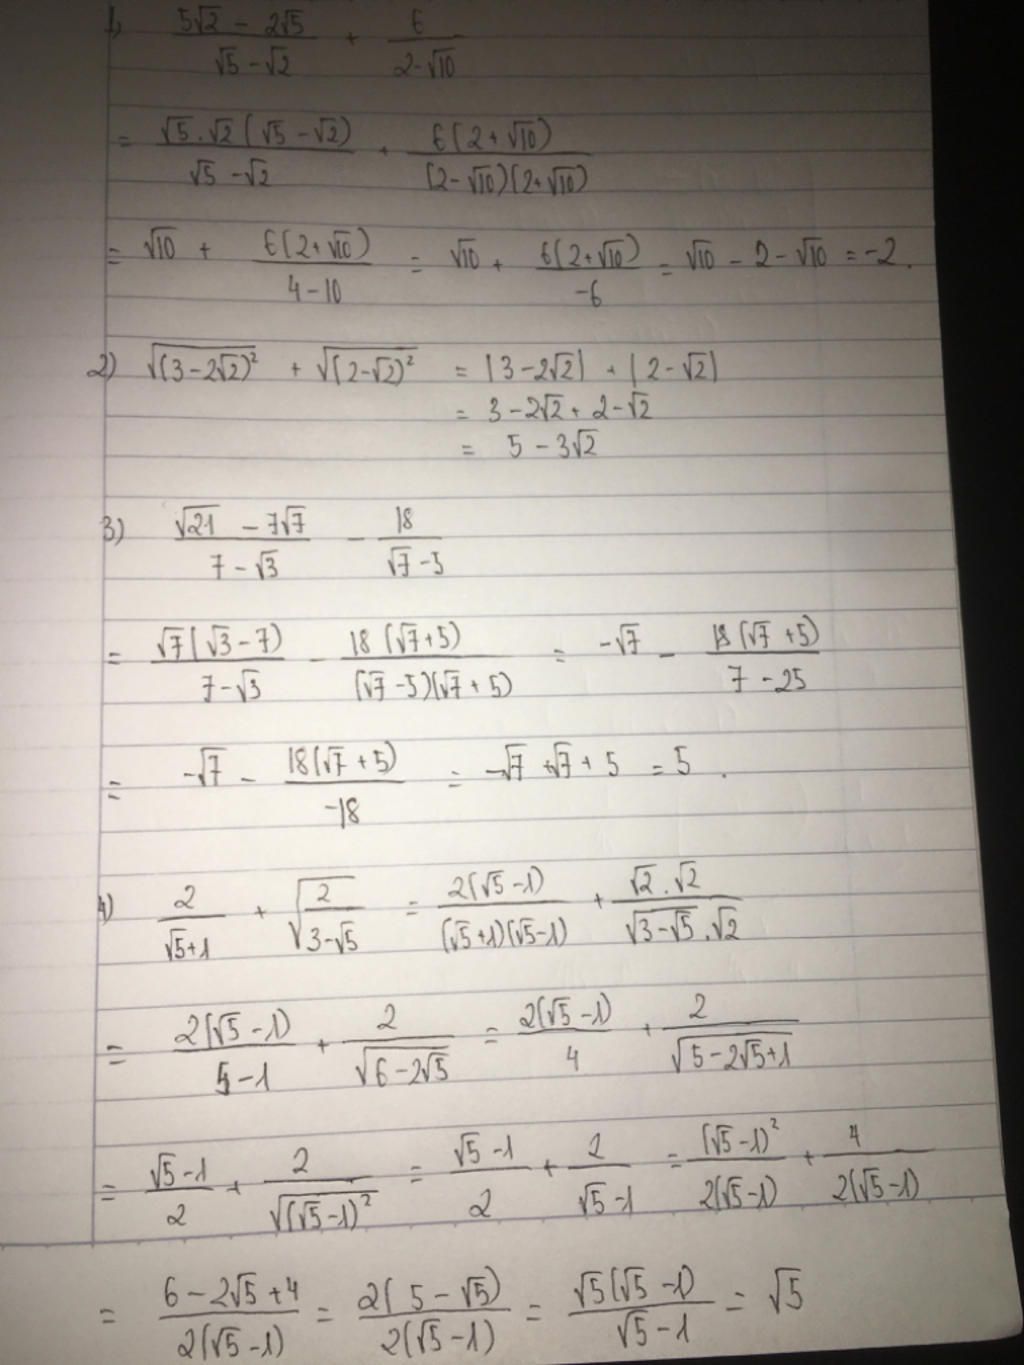 1) (5√2 - 2√5)/(√5 - √2) + 6/(2 - √10)
= √5.√2(√5 - √2)/(√5 - √2) + 6(2 + √10)/((2 - √10)(2 + √10))
= √10 + 6(2 + √10)/(4 - 10) = √10 + 6(2 + √10)/(-6) = √10 - 2 - √10 = -2.
2) √((3 - 2√2)²) + √((2 - √2)²) = |3 - 2√2| + |2 - √2|
= 3 - 2√2 + 2 - √2
= 5 - 3√2
3) (√21 - 7√7)/(7 - √3) - 18/(√7 - 5)
= √7(√3 - 7)/(7 - √3) - 18(√7 + 5)/((√7 - 5)(√7 + 5)) = -√7 - 18(√7 + 5)/(7 - 25)
= -√7 - 18(√7 + 5)/(-18) = -√7 + √7 + 5 = 5.
4) 2/(√5 + 1) + √(2/(3 - √5)) = 2(√5 - 1)/((√5 + 1)(√5 - 1)) + √2.√2/(√(3 - √5).√2)
= 2(√5 - 1)/(5 - 1) + 2/√(6 - 2√5) = 2(√5 - 1)/4 + 2/√(5 - 2√5 + 1)
= (√5 - 1)/2 + 2/√((√5 - 1)²) = (√5 - 1)/2 + 2/(√5 - 1) = (√5 - 1)²/(2(√5 - 1)) + 4/(2(√5 - 1))
= (6 - 2√5 + 4)/(2(√5 - 1)) = 2(5 - √5)/(2(√5 - 1)) = √5(√5 - 1)/(√5 - 1) = √5